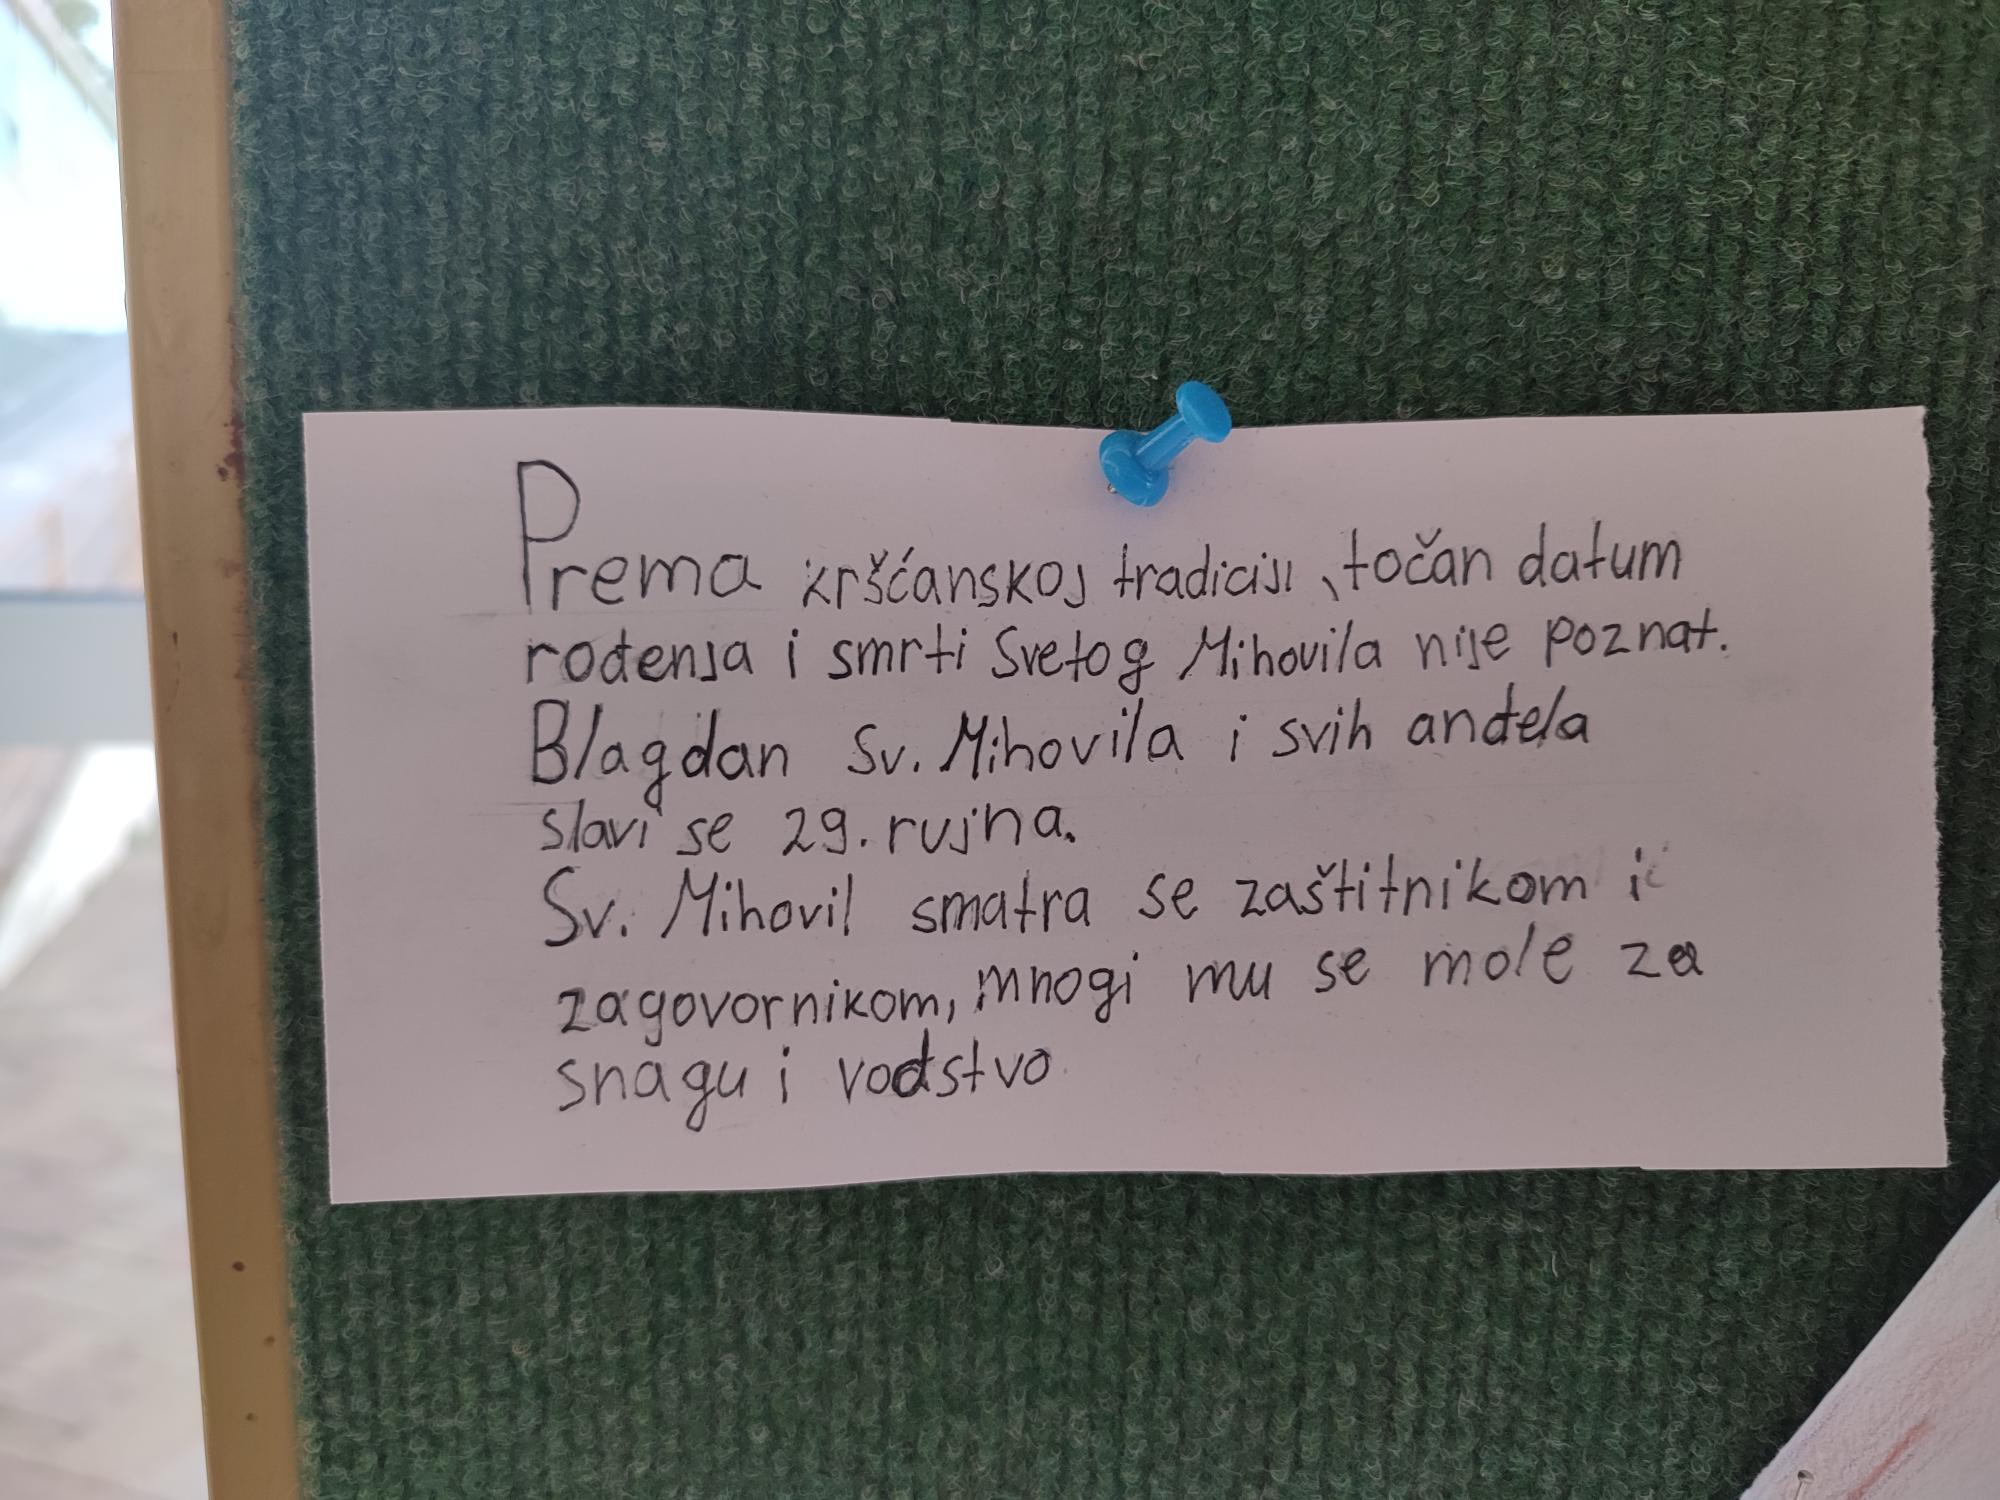 Prema kršćanskoj tradiciji, točan datum
rođenja i smrti Svetog Mihovila nije poznat.
Blagdan Sv. Mihovila i svih anđela
slavi se 29. rujna.
Sv. Mihovil smatra se zaštitnikom i
zagovornikom, mnogi mu se mole za
snagu i vodstvo